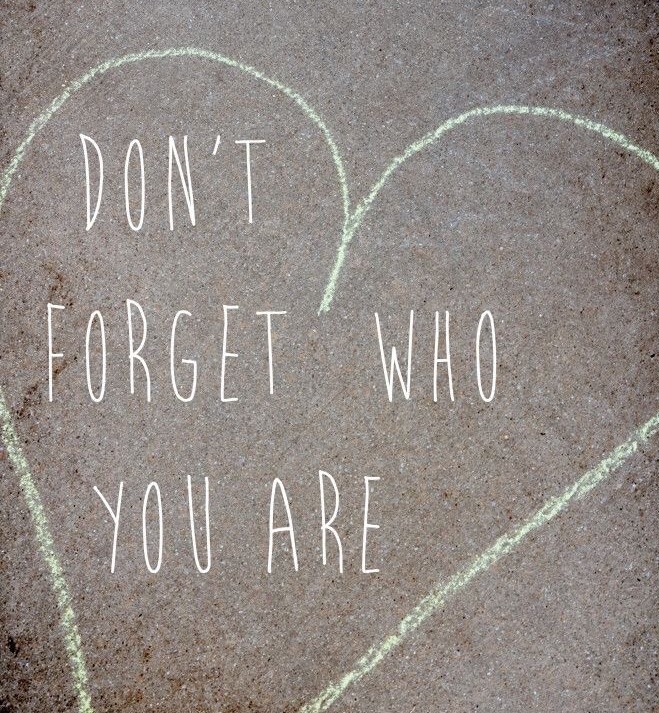 DON'T
FORGET WHO
YOU ARE